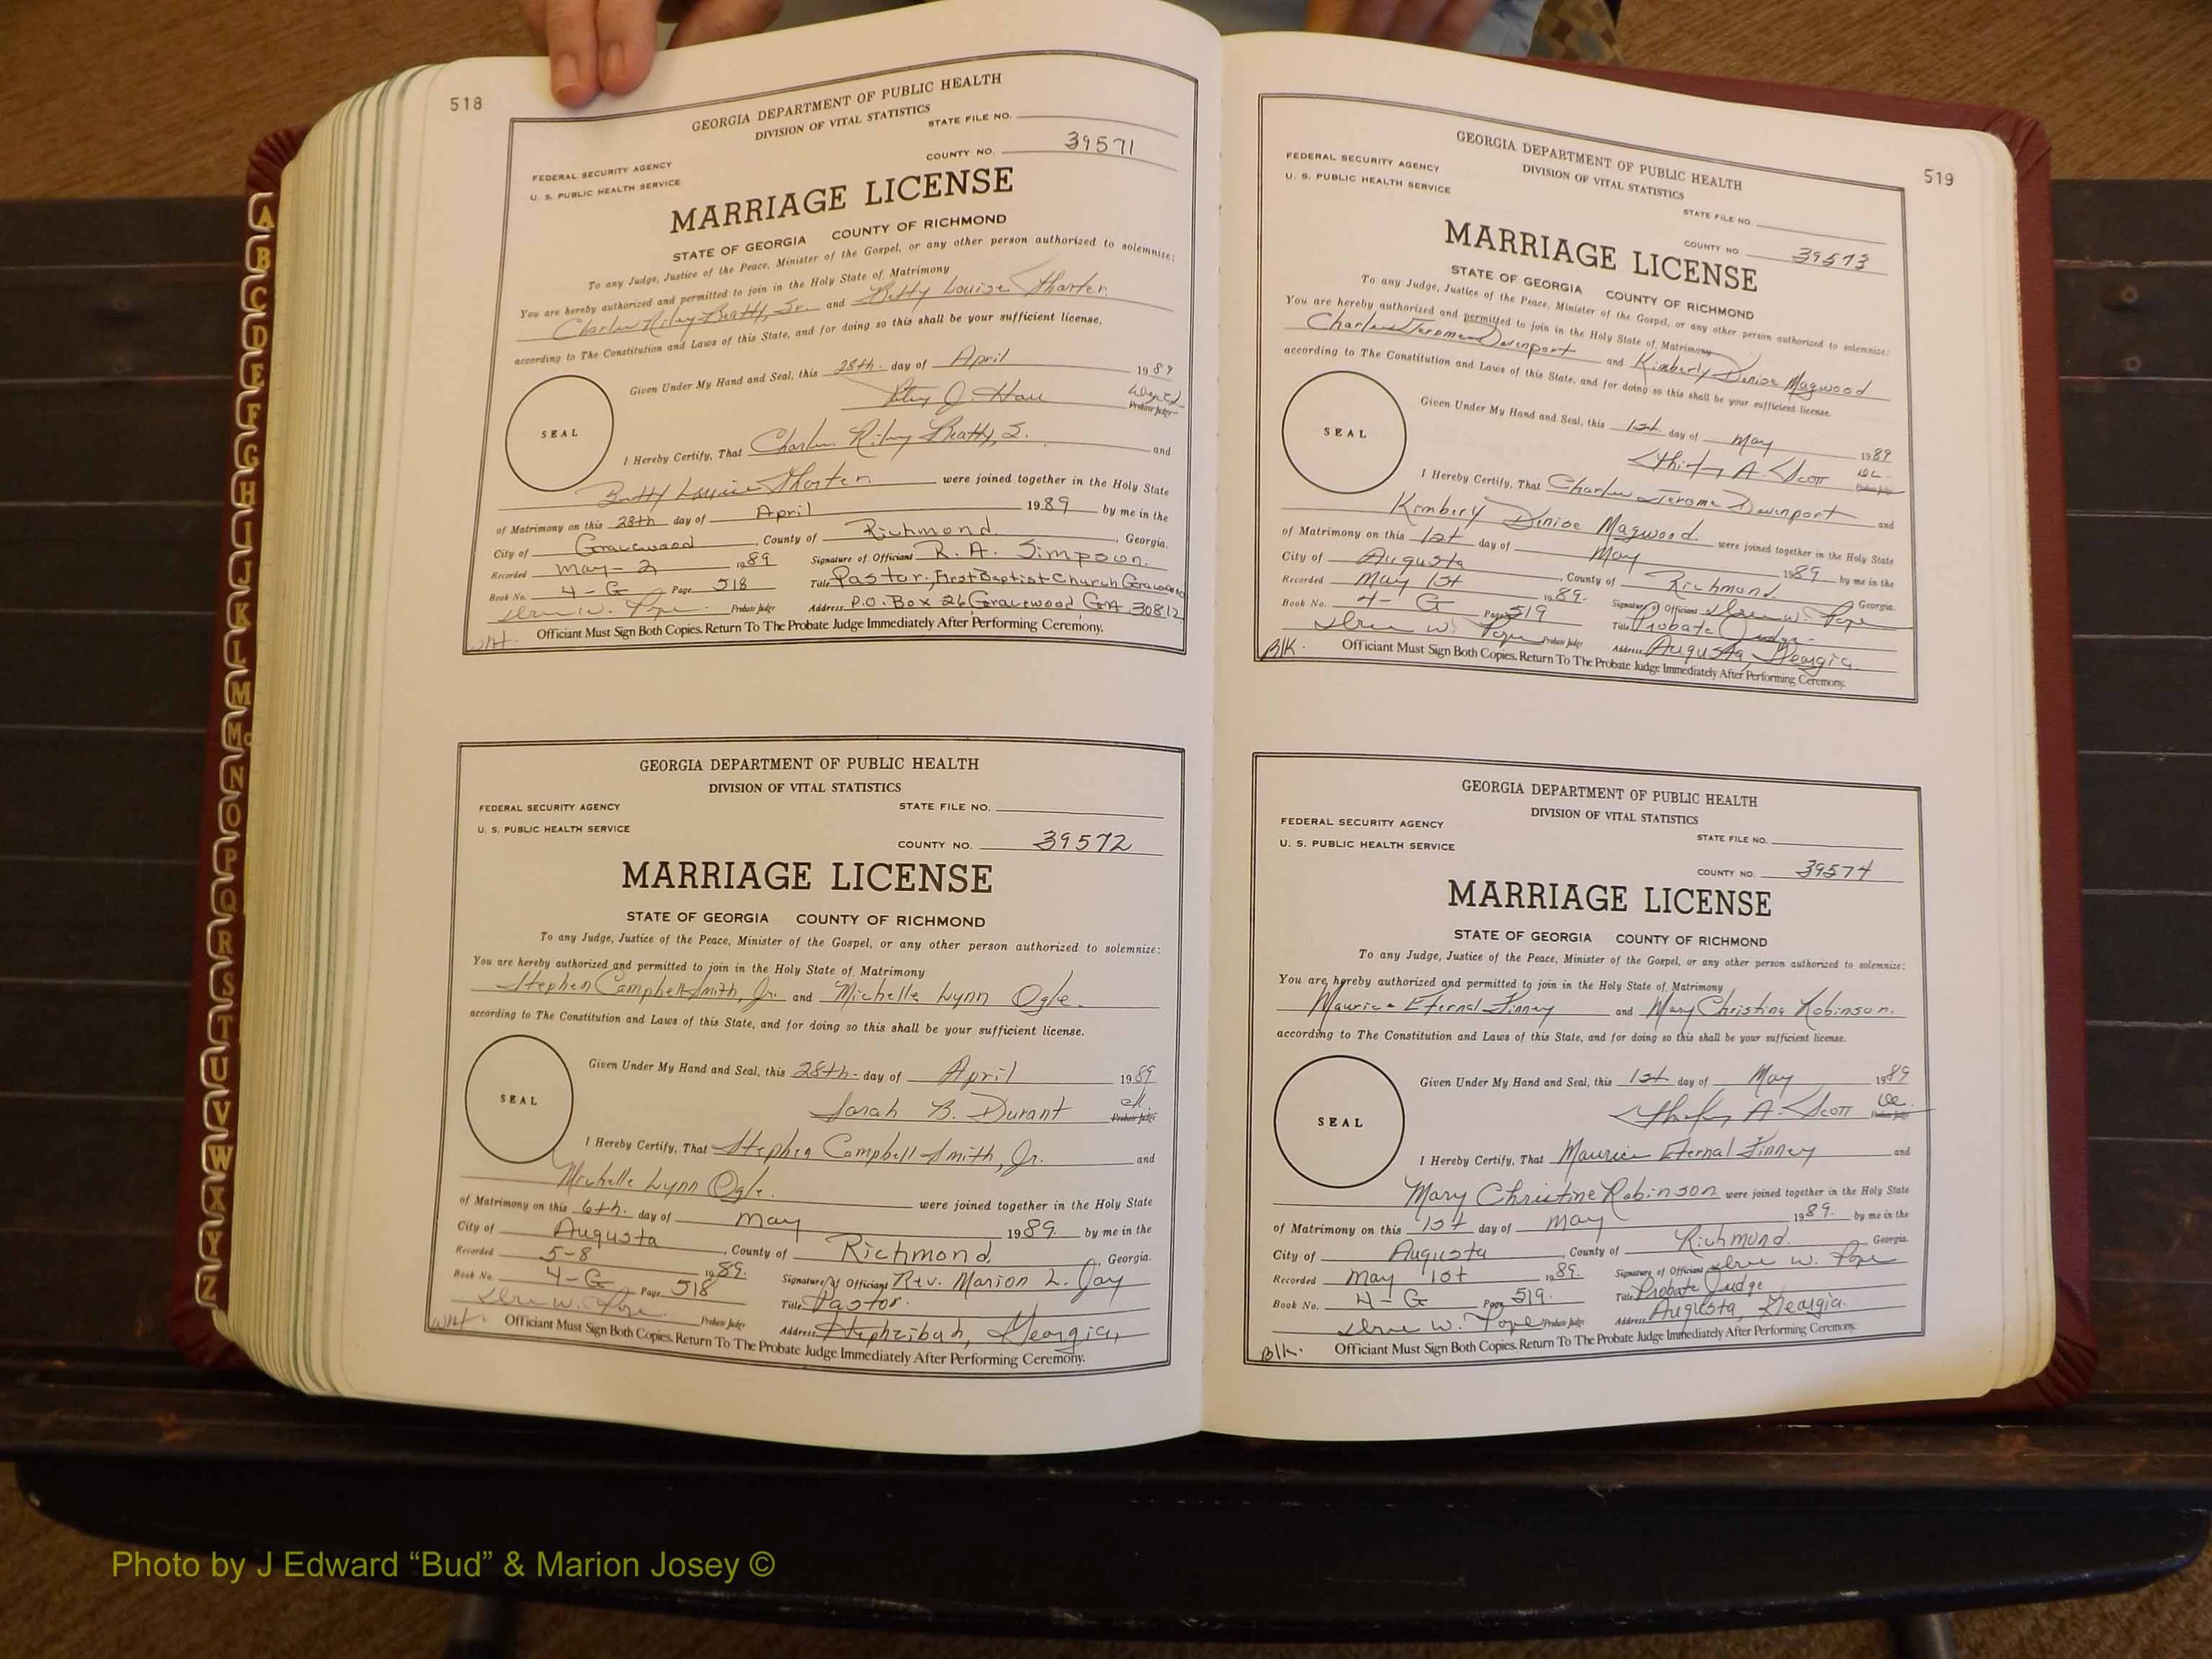 518
GEORGIA DEPARTMENT OF PUBLIC HEALTH
DIVISION OF VITAL STATISTICS
STATE FILE NO.
FEDERAL SECURITY AGENCY
U. S. PUBLIC HEALTH SERVICE
COUNTY NO. 39571
MARRIAGE LICENSE
STATE OF GEORGIA COUNTY OF RICHMOND
To any Judge, Justice of the Peace, Minister of the Gospel, or any other person authorized to solemnize:
You are hereby authorized and permitted to join in the Holy State of Matrimony
Charles Riley Beatty, Sr. and Betty Louise
according to The Constitution and Laws of this State, and for doing so this shall be your sufficient license.
Given Under My Hand and Seal, this 28th. day of April 1989
J.
Probate Judge
SEAL
I Hereby Certify, That Charles Riley Beatty, S. and
Betty Louise were joined together in the Holy State
of Matrimony on this 28th day of April 1989 by me in the
City of Gracewood, County of Richmond, Georgia.
Recorded May-2 1989 Signature of Official R. A. Simpson.
Book No. 4-G Page 518 Title Pastor, First Baptist Church Gracewood
W. Pope Probate Judge Address P.O. Box 26 Gracewood GA 30812
Wht. Officiant Must Sign Both Copies. Return To The Probate Judge Immediately After Performing Ceremony.
GEORGIA DEPARTMENT OF PUBLIC HEALTH
DIVISION OF VITAL STATISTICS
FEDERAL SECURITY AGENCY STATE FILE NO.
U. S. PUBLIC HEALTH SERVICE
COUNTY NO. 39572
MARRIAGE LICENSE
STATE OF GEORGIA COUNTY OF RICHMOND
To any Judge, Justice of the Peace, Minister of the Gospel, or any other person authorized to solemnize:
You are hereby authorized and permitted to join in the Holy State of Matrimony
Stephen Campbell Smith, Jr. and Michelle Lynn Ogle.
according to The Constitution and Laws of this State, and for doing so this shall be your sufficient license.
Given Under My Hand and Seal, this 28th- day of April 1989
Sarah B. Durant
Probate Judge
SEAL
I Hereby Certify, That Stephen Campbell Smith, Jr. and
Michelle Lynn Ogle. were joined together in the Holy State
of Matrimony on this 6th. day of May 1989. by me in the
City of Augusta, County of Richmond, Georgia.
Recorded 5-8 1989. Signature of Official Rev. Marion L. Jay
Book No. 4-G Page 518 Title Pastor.
W. Pope. Probate Judge Address Hephzibah, Georgia,
Wht. Officiant Must Sign Both Copies. Return To The Probate Judge Immediately After Performing Ceremony.
519
GEORGIA DEPARTMENT OF PUBLIC HEALTH
DIVISION OF VITAL STATISTICS
FEDERAL SECURITY AGENCY
U. S. PUBLIC HEALTH SERVICE
STATE FILE NO.
COUNTY NO. 39573
MARRIAGE LICENSE
STATE OF GEORGIA COUNTY OF RICHMOND
To any Judge, Justice of the Peace, Minister of the Gospel, or any other person authorized to solemnize:
You are hereby authorized and permitted to join in the Holy State of Matrimony
Charles Jerome Davenport and Kimberly Denise Magwood
according to The Constitution and Laws of this State, and for doing so this shall be your sufficient license.
Given Under My Hand and Seal, this 1st day of May 1989
A. Scott
Probate Judge
SEAL
I Hereby Certify, That Charles Jerome Davenport and
Kimberly Denise Magwood. were joined together in the Holy State
of Matrimony on this 1st day of May 1989 by me in the
City of Augusta, County of Richmond, Georgia.
Recorded May 1st 1989. Signature of Official W. Pope
Book No. 4-G Page 519 Title Probate Judge
W. Pope Probate Judge Address Augusta, Georgia
Blk. Officiant Must Sign Both Copies. Return To The Probate Judge Immediately After Performing Ceremony.
GEORGIA DEPARTMENT OF PUBLIC HEALTH
DIVISION OF VITAL STATISTICS
FEDERAL SECURITY AGENCY
U. S. PUBLIC HEALTH SERVICE
STATE FILE NO.
COUNTY NO. 39574
MARRIAGE LICENSE
STATE OF GEORGIA COUNTY OF RICHMOND
To any Judge, Justice of the Peace, Minister of the Gospel, or any other person authorized to solemnize:
You are hereby authorized and permitted to join in the Holy State of Matrimony
Maurice Eternal Finney and Mary Christine Robinson.
according to The Constitution and Laws of this State, and for doing so this shall be your sufficient license.
Given Under My Hand and Seal, this 1st day of May 1989
A. Scott
Probate Judge
SEAL
I Hereby Certify, That Maurice Eternal Finney and
Mary Christine Robinson were joined together in the Holy State
of Matrimony on this 1st day of May 1989. by me in the
City of Augusta, County of Richmond. Georgia.
Recorded May 1st 1989. Signature of Official W. Pope
Book No. 4-G Page 519. Title Probate Judge
W. Pope Probate Judge Address Augusta, Georgia.
Blk. Officiant Must Sign Both Copies. Return To The Probate Judge Immediately After Performing Ceremony.
A
B
C
D
E
F
G
H
I
J
K
L
M
Mc
N
O
P
Q
R
S
T
U
V
W
X
Y
Z
Photo by J Edward “Bud” & Marion Josey ©